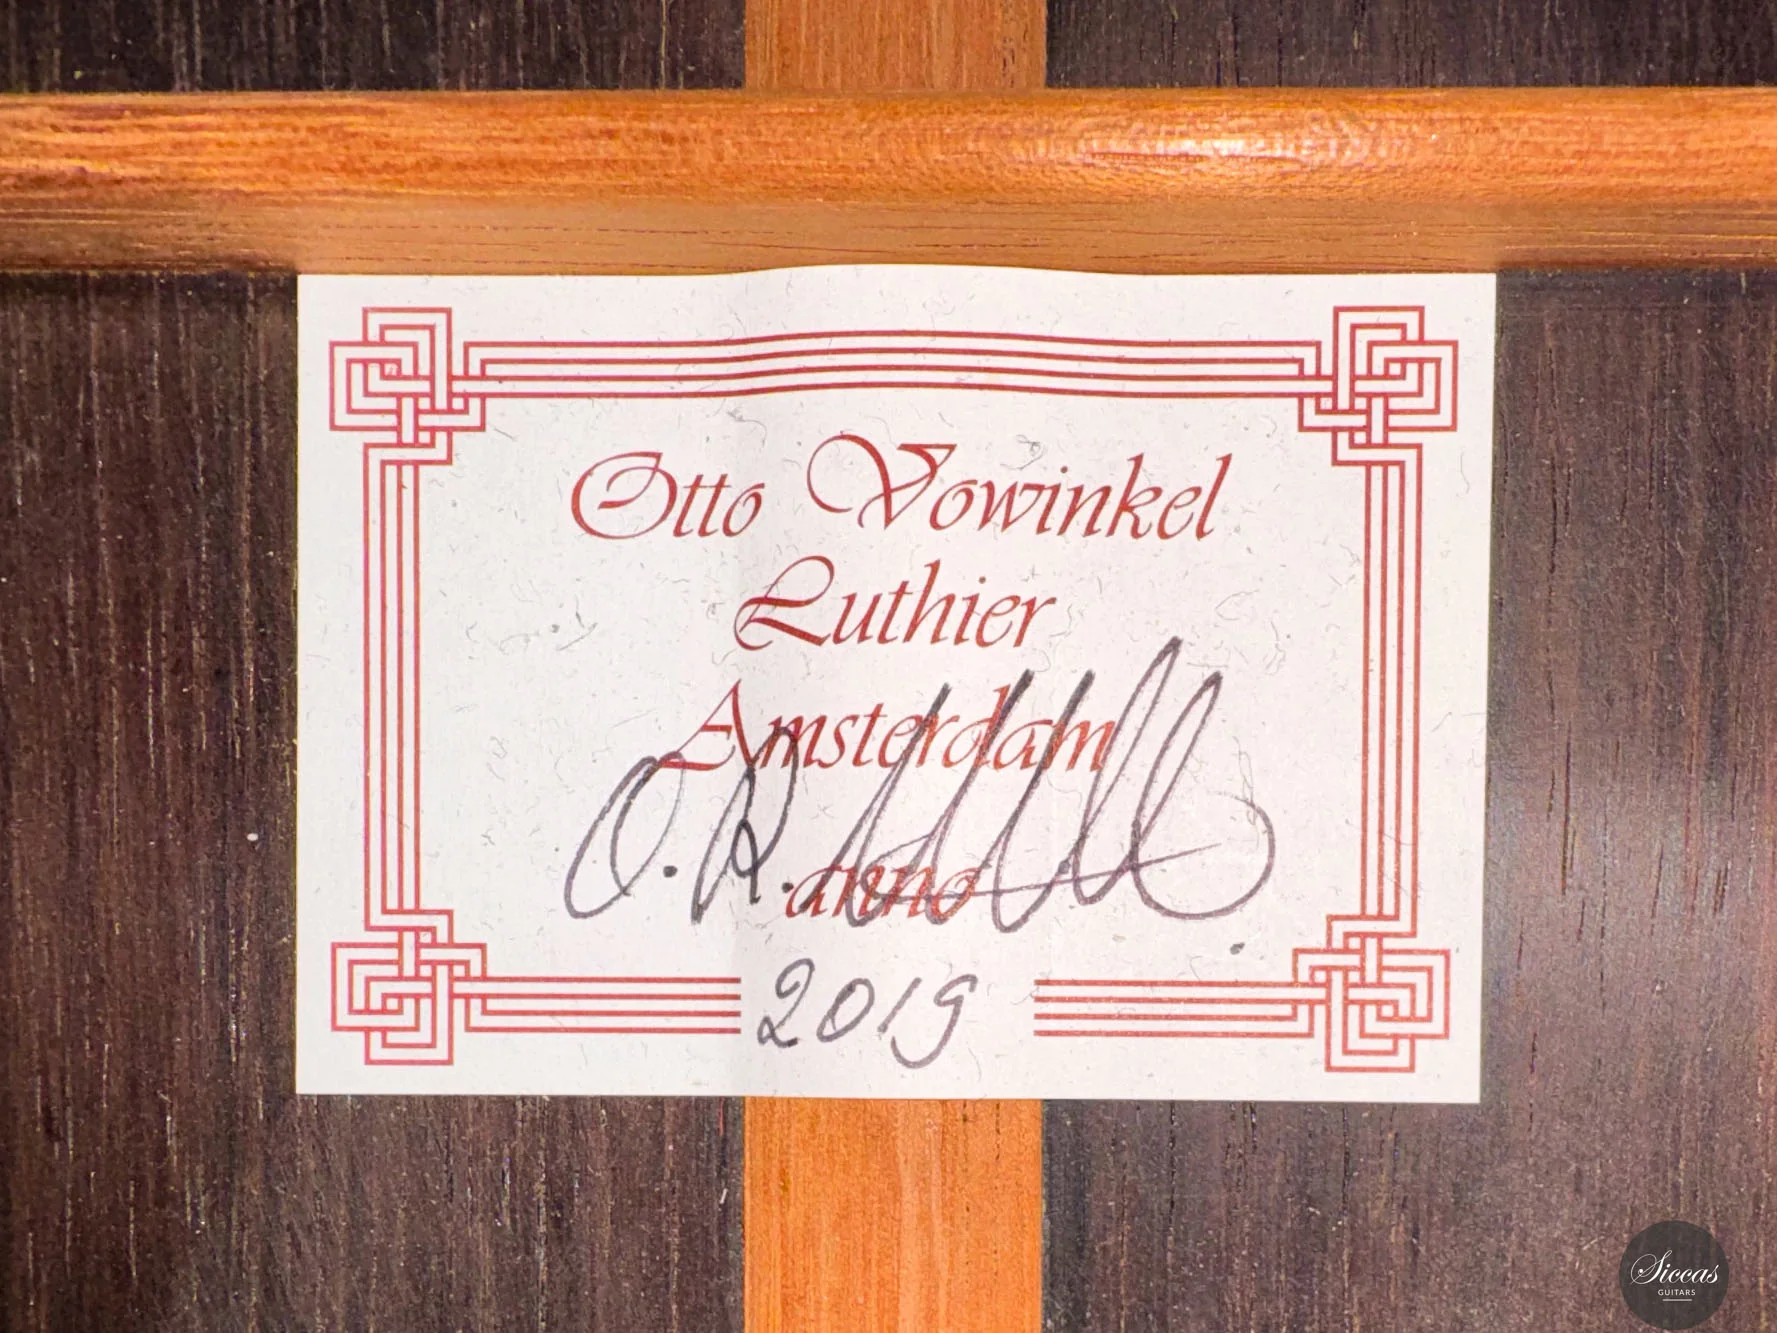 Otto Vowinkel
Luthier
Amsterdam
anno
2019
Siccas
GUITARS